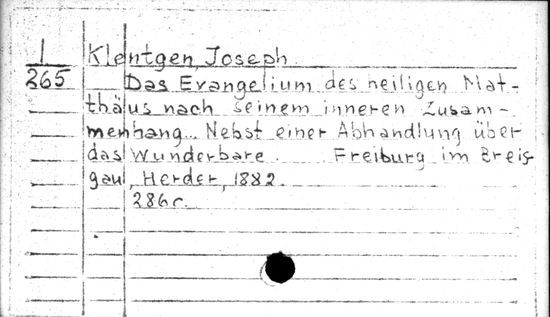 I
265
Klentgen, Joseph.
Das Evangelium des heiligen Mat-
thäus nach seinem inneren Zusam-
menhang. Nebst einer Abhandlung über
das Wunderbare. Freiburg im Breis
gau, Herder, 1882.
286 c.